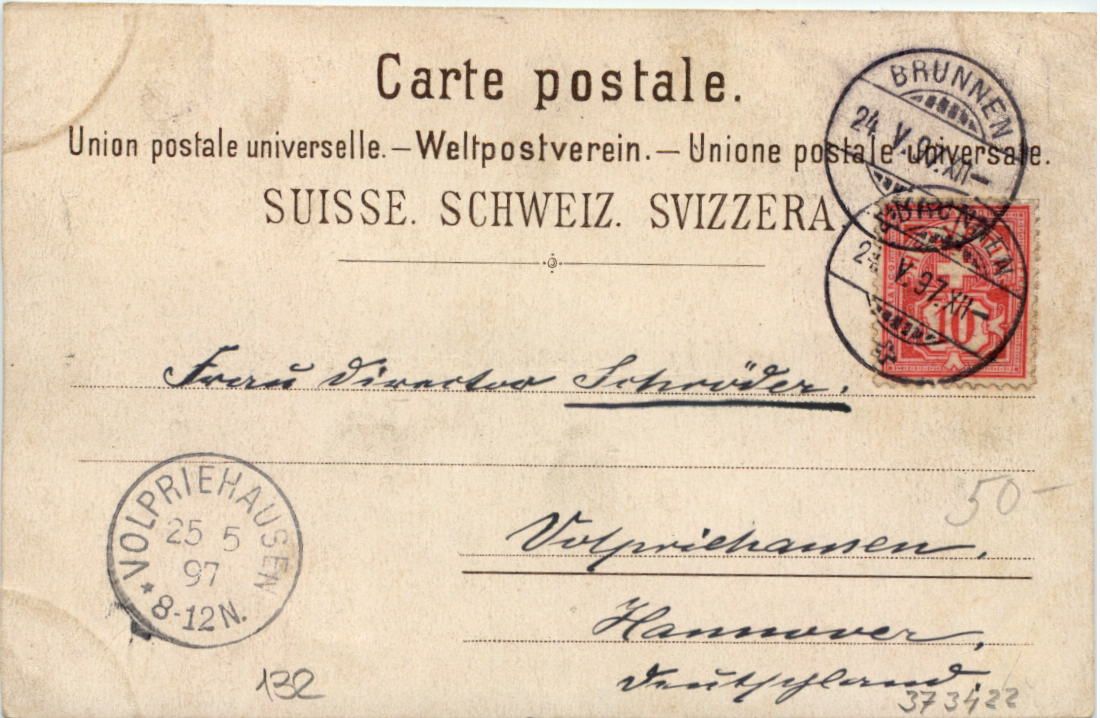 Carte postale.
Union postale universelle. — Weltpostverein. — Unione postale universale.
SUISSE. SCHWEIZ. SVIZZERA.
BRUNNEN
24. V. 97. XII —
BRUNNEN
24. V. 97. XII —
10
Frau Director Schröder.
50 -
VOLPRIEHAUSEN
25 5
97
* 8-12 N.
Volpriehausen.
Hannover.
Deutschland.
132
373422